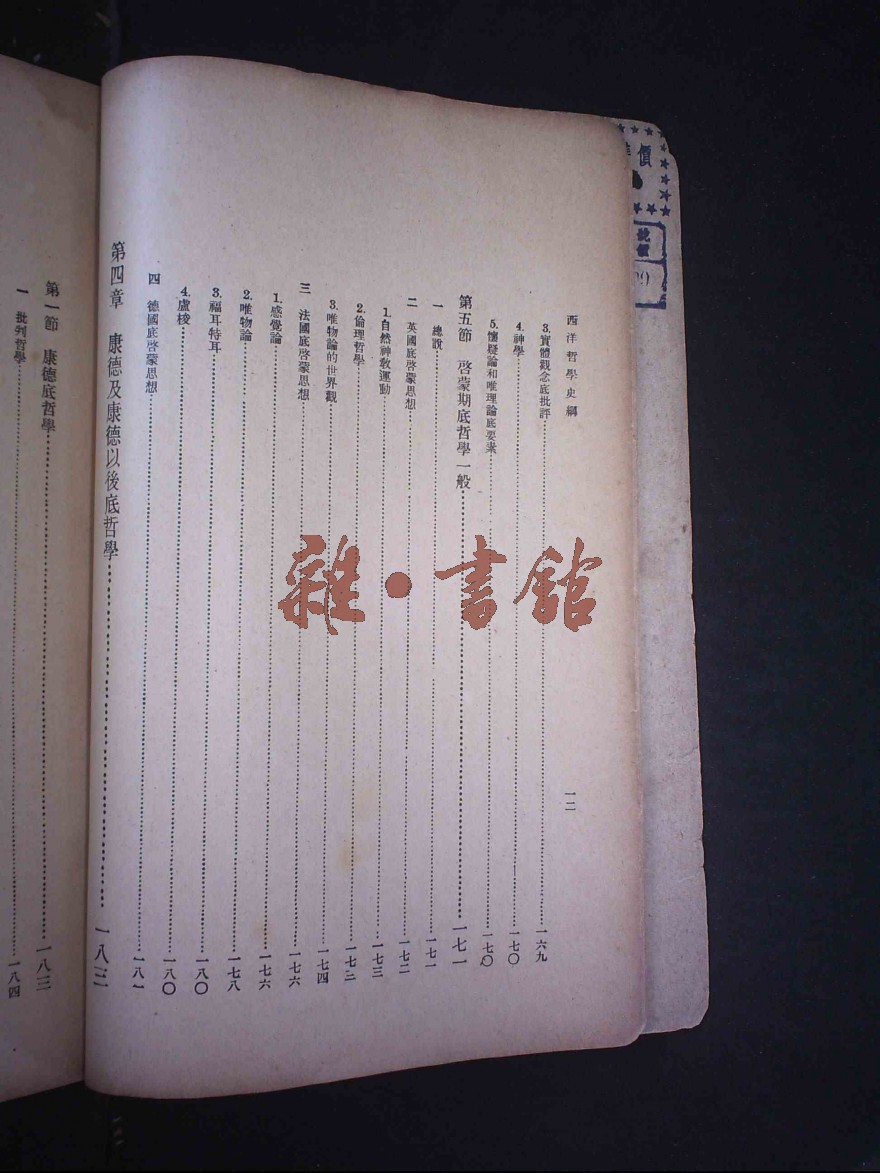 西洋哲學史綱
一二
3.實體觀念底批評 一六九
4.神學 一七〇
5.懷疑論和唯理論底要素 一七〇
第五節 啓蒙期底哲學一般 一七一
一 總說 一七一
二 英國底啓蒙思想 一七二
1.自然神教運動 一七三
2.倫理哲學 一七三
3.唯物論的世界觀 一七四
三 法國底啓蒙思想 一七六
1.感覺論 一七六
2.唯物論 一七八
3.福耳特耳 一八〇
4.盧梭 一八〇
四 德國底啓蒙思想 一八一
第四章 康德及康德以後底哲學 一八三
第一節 康德底哲學 一八三
一 批判哲學 一八四
雜·書館
價